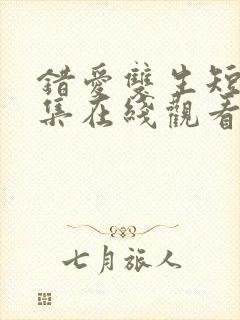 錯愛雙生短
集在綫觀看
七月旅人